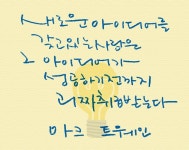 새로운 아이디어를
갖고있는사람은
그 아이디어가
성공하기전까지
괴짜취급받는다
마크 트웨인